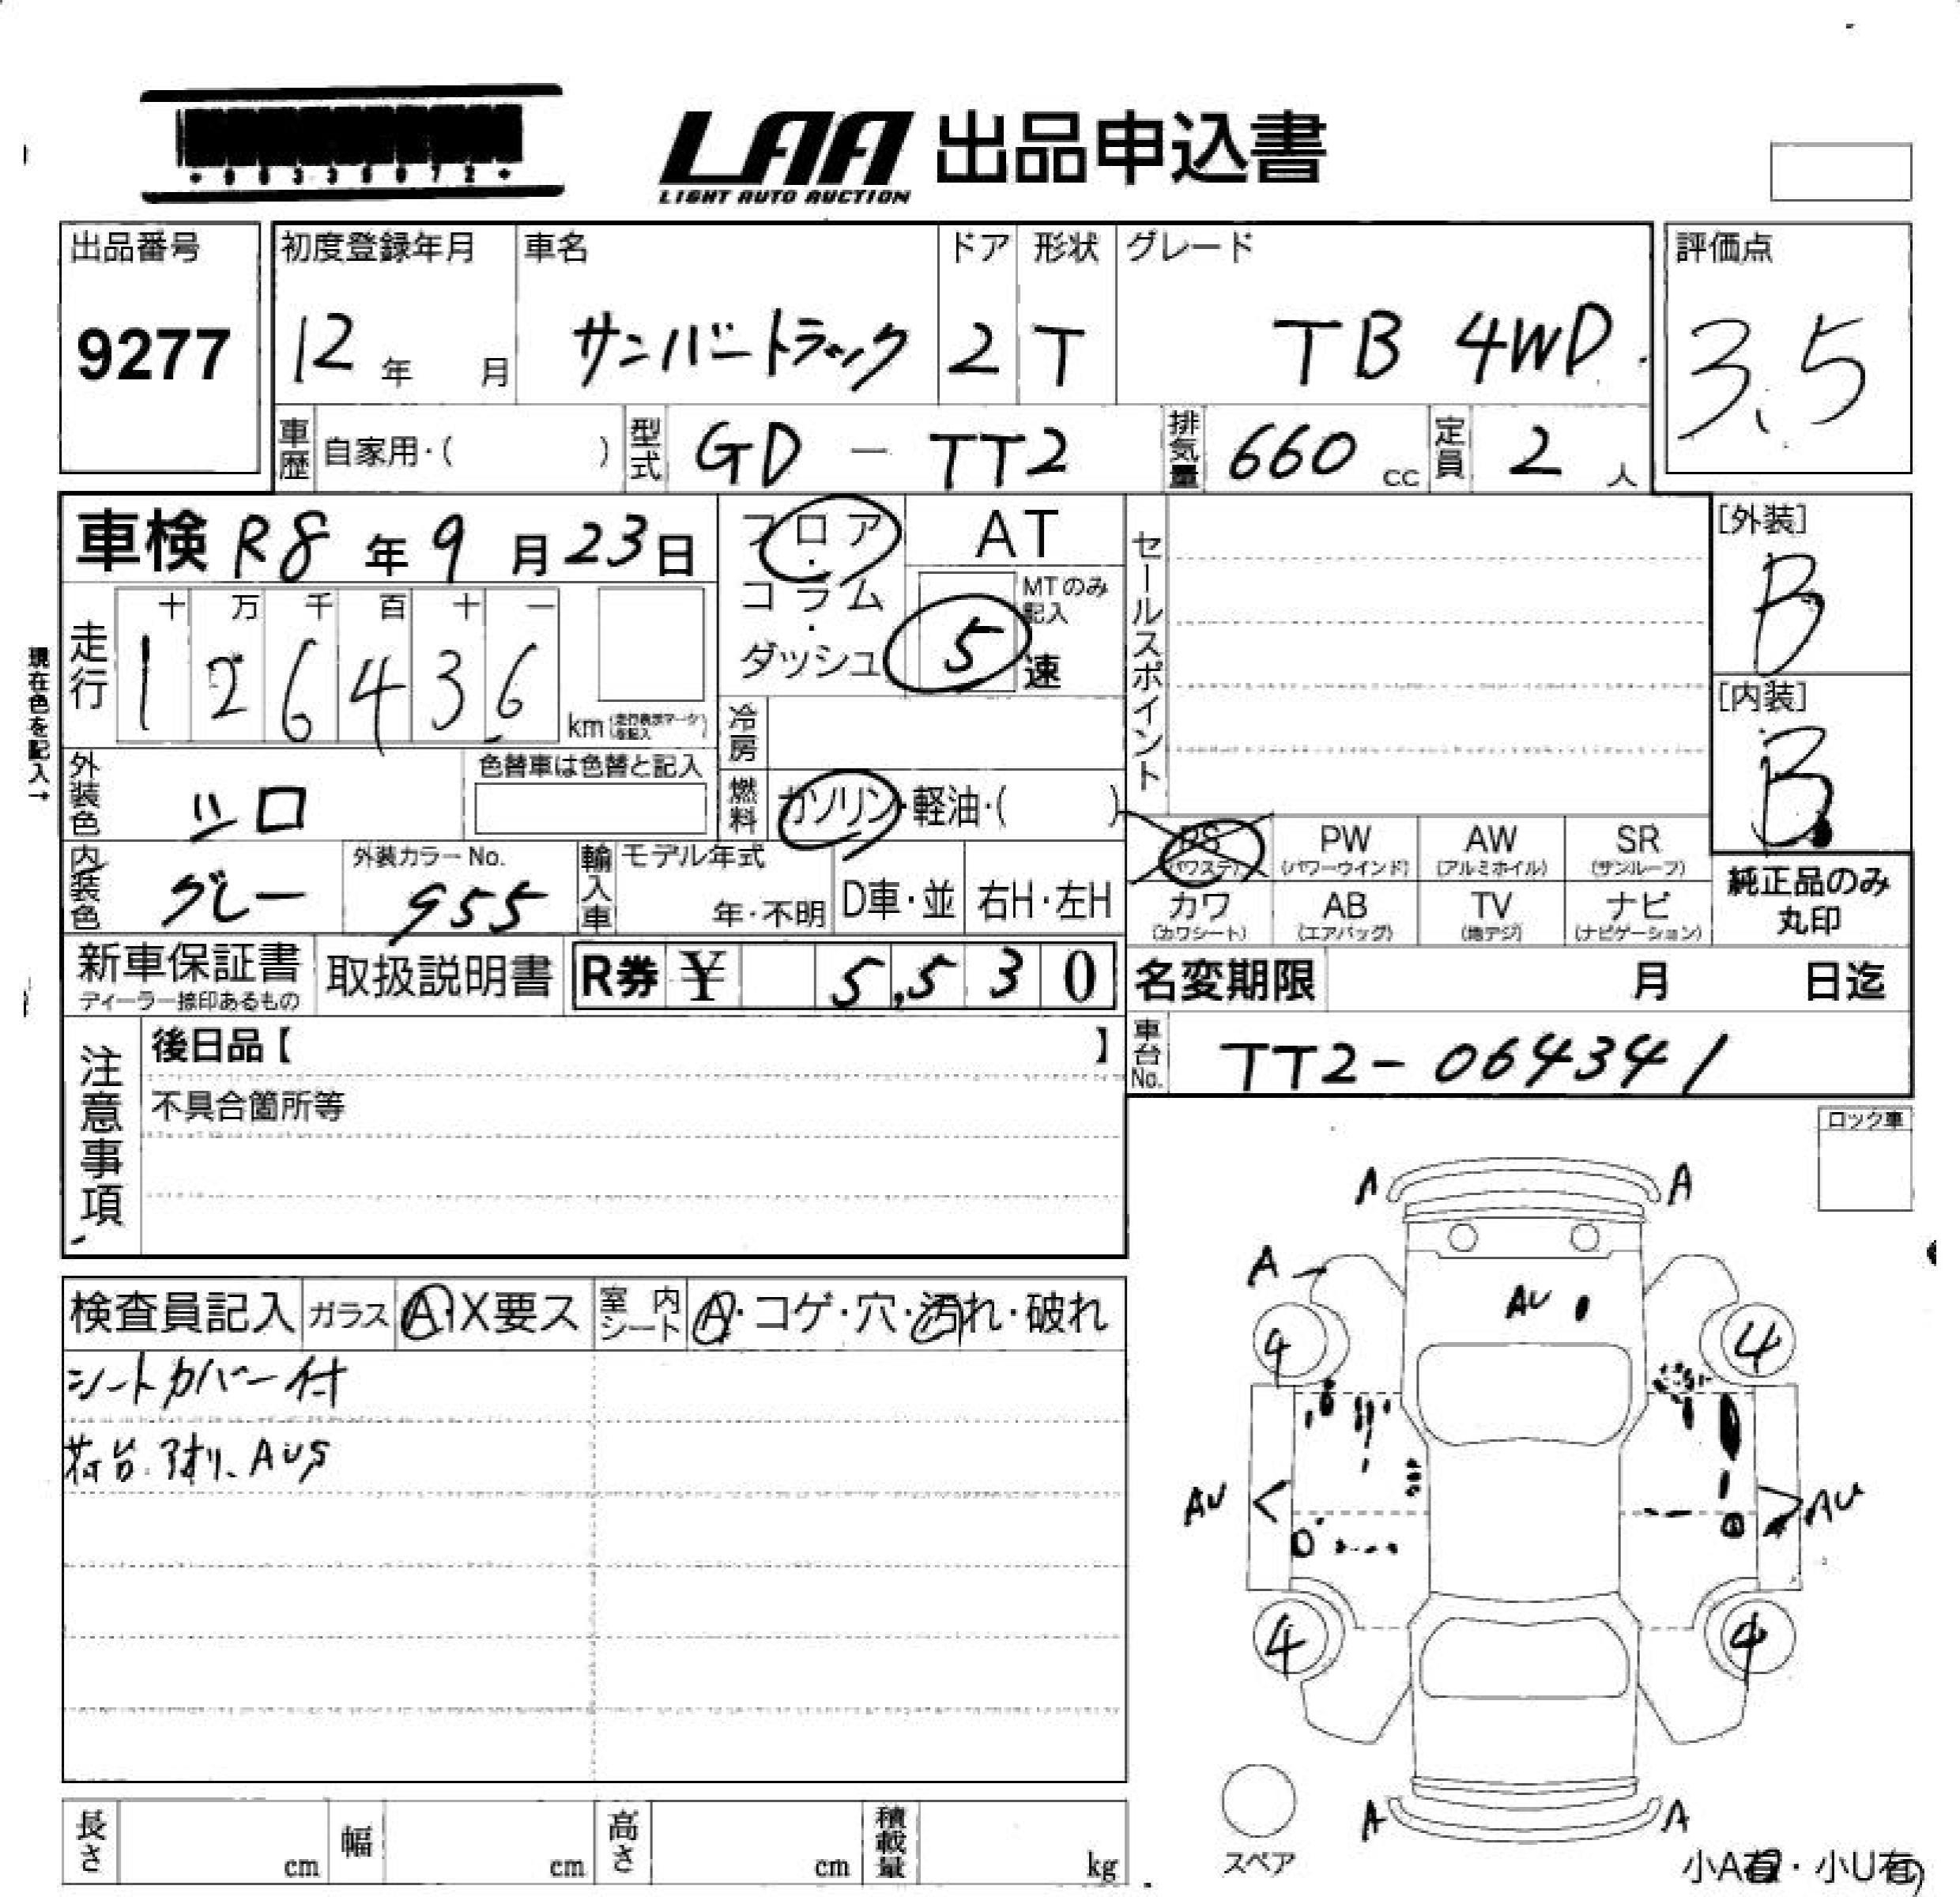 LAA 出品申込書
LIGHT AUTO AUCTION
出品番号
9277
初度登録年月
12年 月
車名
サンバートラック
ドア
2
形状
T
グレード
TB 4WD
評価点
3.5
車歴 自家用・( )
型式 GD-TT2
排気量 660 cc
定員 2 人
車検 R8年9月23日
フロア・コラム・ダッシュ
AT
MTのみ記入
5速
セールスポイント
[外装]
B
[内装]
B
現在色を記入→
走行
十 万 千 百 十 一
1 2 6 4 3 6 km (走行表示マークを記入)
冷房
外装色 シロ
色替車は色替と記入
燃料 ガソリン・軽油・( )
PS (パワステ)
PW (パワーウインド)
AW (アルミホイル)
SR (サンルーフ)
内装色 グレー
外装カラーNo.
955
輸入車
モデル年式
年・不明
D車・並
右H・左H
カワ (カワシート)
AB (エアバッグ)
TV (地デジ)
ナビ (ナビゲーション)
純正品のみ
丸印
新車保証書
ディーラー捺印あるもの
取扱説明書
R券 ¥ 5,530
名変期限 月 日迄
注意事項
後日品【 】
不具合箇所等
車台No. TT2-064341
ロック車
検査員記入
ガラス A・X要ス
室内シート A・コゲ・穴・汚れ・破れ
シートカバー付
荷台.アオリ.AUS
A A
A
AU
4 4
AU AU
4 4
A A
スペア
長さ cm
幅 cm
高さ cm
積載量 kg
小A有・小U有